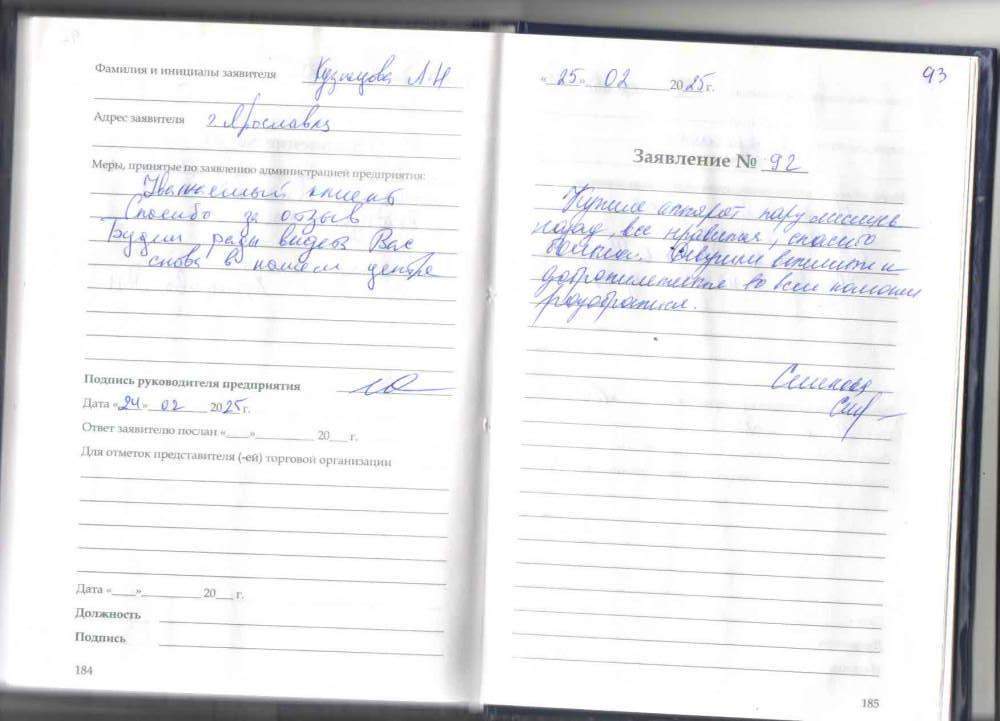 Фамилия и инициалы заявителя Кузнецова Л.Н
Адрес заявителя г. Ярославль
Меры, принятые по заявлению администрацией предприятия:
Уважаемый клиент
Спасибо за отзыв
Будем рады видеть Вас
снова в нашем центре
Подпись руководителя предприятия
Дата «24» 02 2025 г.
Ответ заявителю послан «___»__________ 20___ г.
Для отметок представителя (-ей) торговой организации
Дата «____»__________ 20___ г.
Должность
Подпись
184
93
«25» 02 2025 г.
Заявление № 92
Купила аппарат пару месяцев
назад, все нравится, спасибо
большое. Девушки
доброжелательные во всем помогли
разобраться.
185